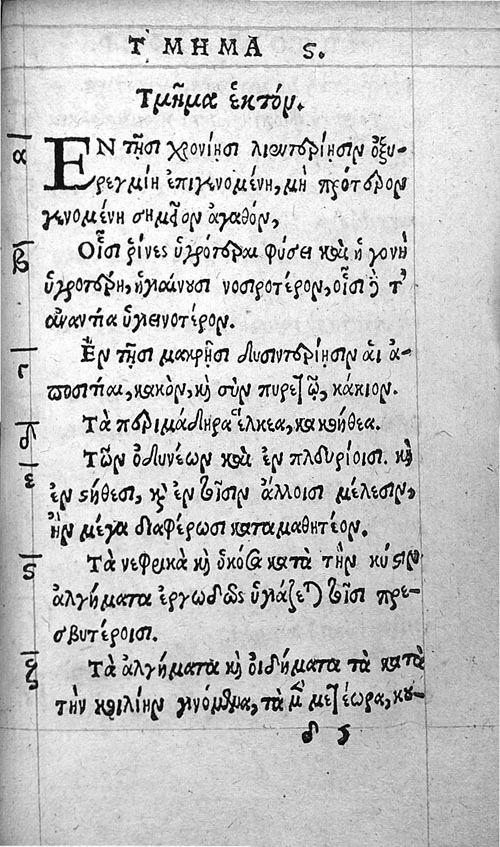 ΤΜΗΜΑ ϛ.
Τμῆμα ἑκτόν.
α
ΕΝ τῇσι χρονίῃσι λιεντερίῃσιν ὀξυ-
ρεγμίη ἐπιγενομένη, μὴ πρότερον
γενομένη σημεῖον ἀγαθόν,
β
Οἷσι ῥίνες ὑγρότεραι φύσει καὶ ἡ γονὴ
ὑγροτέρη, ὑγιαίνουσι νοσηρότερον, οἷσι δὲ τ'
ἀναντία ὑγιεινοτέρον.
γ
Ἐν τῇσι μακρῇσι δυσεντερίῃσιν αἱ ἀ-
ποσιτίαι, κακὸν, καὶ σὺν πυρετῷ, κάκιον.
δ
Τὰ περιμάδηρα ἕλκεα, κακοήθεα.
ε
Τῶν ὀδυνέων καὶ ἐν πλευρίοισι. καὶ
ἐν στήθεσι, καὶ ἐν τοῖσιν ἄλλοισι μέλεσιν,
ἢν μέγα διαφέρωσι καταμαθητέον.
ϛ
Τὰ νεφρικὰ καὶ ὁκόσα κατὰ τὴν κύστιν
ἀλγήματα ἐργωδῶς ὑγιάζεται τοῖσι πρε-
σβυτέροισι.
ζ
Τὰ ἀλγήματα καὶ οἰδήματα τὰ κατὰ
τὴν κοιλίην γινόμενα, τὰ μὲν μετέωρα, κου-
δ 5